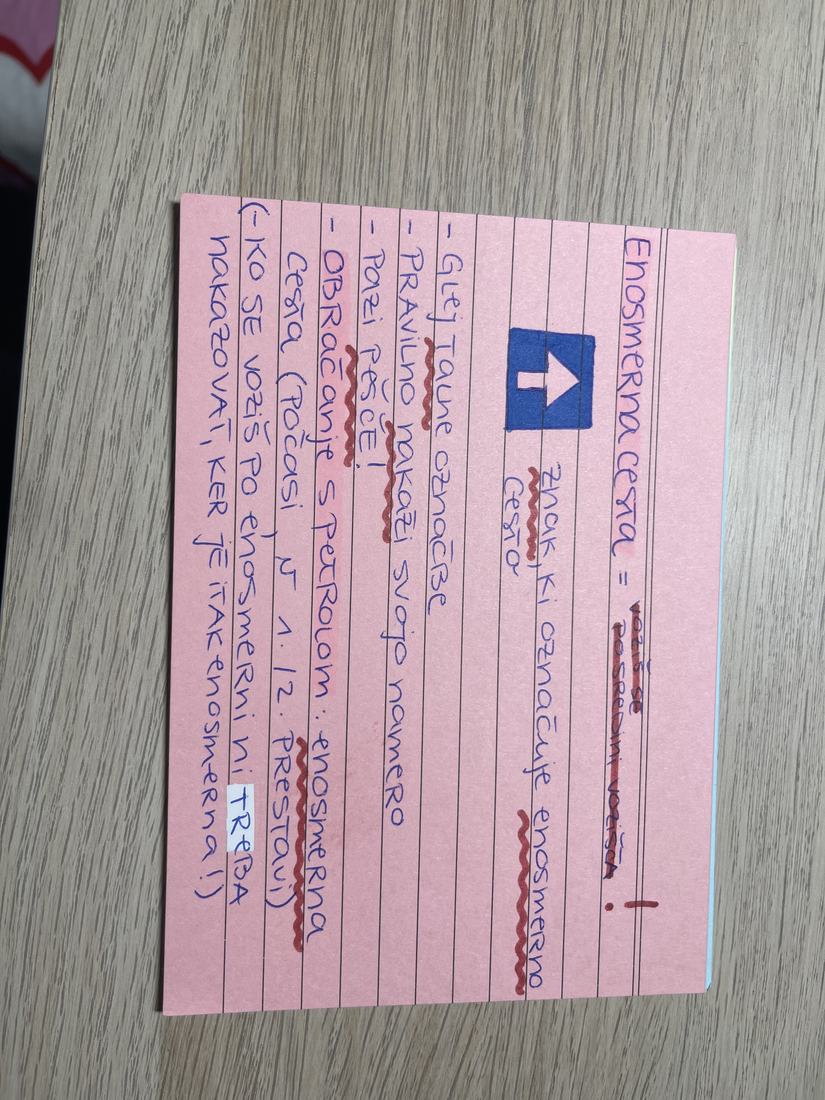 Enosmerna cesta = voziš se posredini vozišča!
znak, ki označuje enosmerno
cesto
- Glej talne označbe
- PRAVILNO nakaži svojo namero
- Pazi PEŠČE!
- OBRAČANJE S PETROLOM: enosmerna
cesta (Počasi, v 1./2. PRESTAVI)
(- KO SE VOZIŠ PO enosmerni ni TREBA
nakazovat, KER JE ITAK enosmerna!)